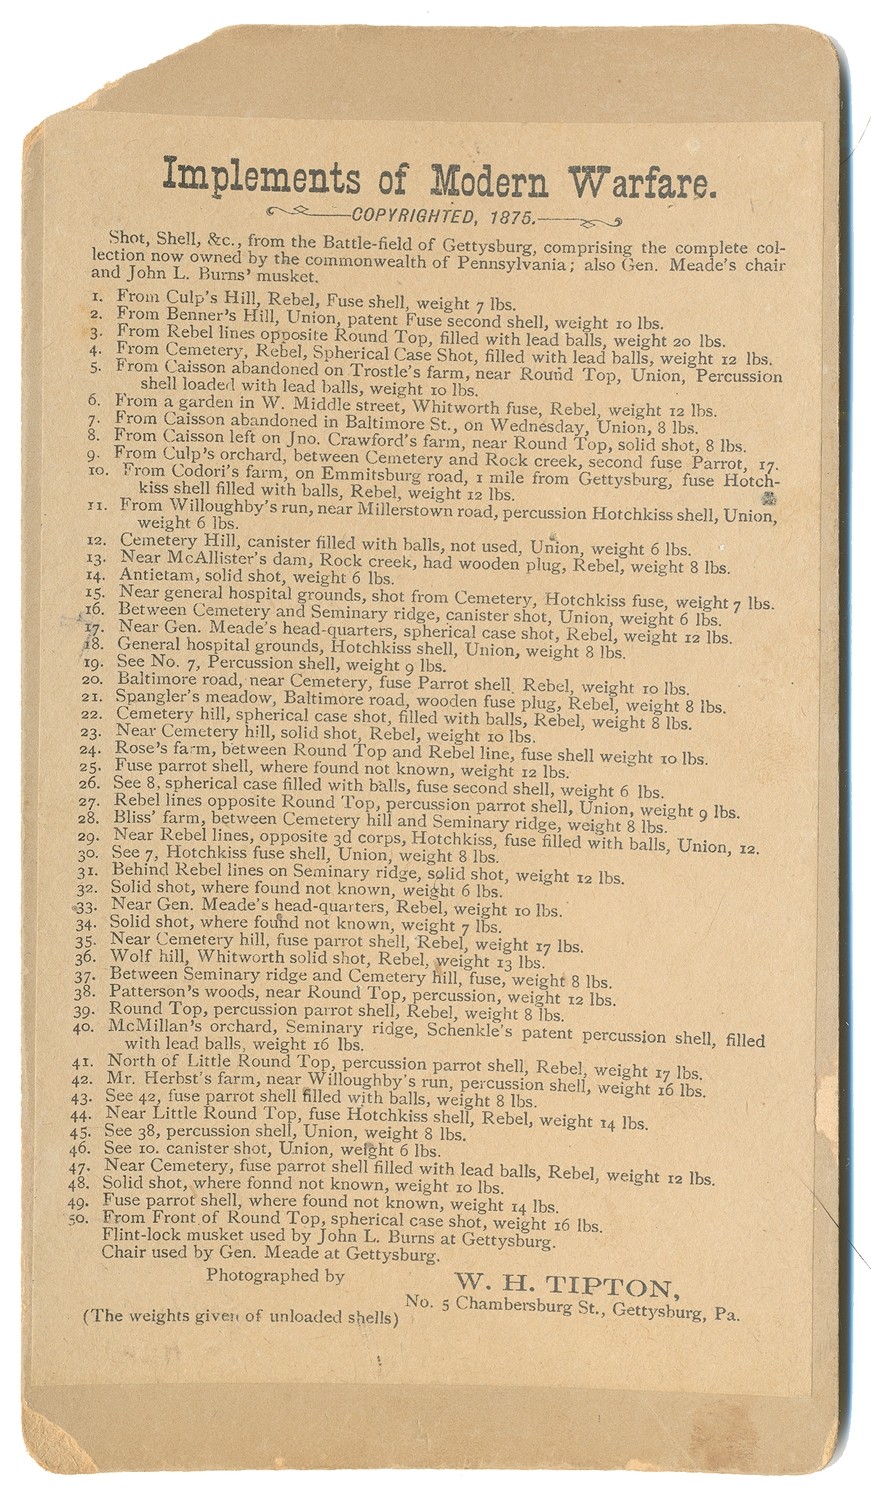 Implements of Modern Warfare.
COPYRIGHTED, 1875.
Shot, Shell, &c., from the Battle-field of Gettysburg, comprising the complete col-
lection now owned by the commonwealth of Pennsylvania; also Gen. Meade's chair
and John L. Burns' musket.
1. From Culp's Hill, Rebel, Fuse shell, weight 7 lbs.
2. From Benner's Hill, Union, patent Fuse second shell, weight 10 lbs.
3. From Rebel lines opposite Round Top, filled with lead balls, weight 20 lbs.
4. From Cemetery, Rebel, Spherical Case Shot, filled with lead balls, weight 12 lbs.
5. From Caisson abandoned on Trostle's farm, near Round Top, Union, Percussion
shell loaded with lead balls, weight 10 lbs.
6. From a garden in W. Middle street, Whitworth fuse, Rebel, weight 12 lbs.
7. From Caisson abandoned in Baltimore St., on Wednesday, Union, 8 lbs.
8. From Caisson left on Jno. Crawford's farm, near Round Top, solid shot, 8 lbs.
9. From Culp's orchard, between Cemetery and Rock creek, second fuse Parrot, 17.
10. From Codori's farm, on Emmitsburg road, 1 mile from Gettysburg, fuse Hotch-
kiss shell filled with balls, Rebel, weight 12 lbs.
11. From Willoughby's run, near Millerstown road, percussion Hotchkiss shell, Union,
weight 6 lbs.
12. Cemetery Hill, canister filled with balls, not used, Union, weight 6 lbs.
13. Near McAllister's dam, Rock creek, had wooden plug, Rebel, weight 8 lbs.
14. Antietam, solid shot, weight 6 lbs.
15. Near general hospital grounds, shot from Cemetery, Hotchkiss fuse, weight 7 lbs.
16. Between Cemetery and Seminary ridge, canister shot, Union, weight 6 lbs.
17. Near Gen. Meade's head-quarters, spherical case shot, Rebel, weight 12 lbs.
18. General hospital grounds, Hotchkiss shell, Union, weight 8 lbs.
19. See No. 7, Percussion shell, weight 9 lbs.
20. Baltimore road, near Cemetery, fuse Parrot shell. Rebel, weight 10 lbs.
21. Spangler's meadow, Baltimore road, wooden fuse plug, Rebel, weight 8 lbs.
22. Cemetery hill, spherical case shot, filled with balls, Rebel, weight 8 lbs.
23. Near Cemetery hill, solid shot, Rebel, weight 10 lbs.
24. Rose's farm, between Round Top and Rebel line, fuse shell weight 10 lbs.
25. Fuse parrot shell, where found not known, weight 12 lbs.
26. See 8, spherical case filled with balls, fuse second shell, weight 6 lbs.
27. Rebel lines opposite Round Top, percussion parrot shell, Union, weight 9 lbs.
28. Bliss' farm, between Cemetery hill and Seminary ridge, weight 8 lbs.
29. Near Rebel lines, opposite 3d corps, Hotchkiss, fuse filled with balls, Union, 12.
30. See 7, Hotchkiss fuse shell, Union, weight 8 lbs.
31. Behind Rebel lines on Seminary ridge, solid shot, weight 12 lbs.
32. Solid shot, where found not known, weight 6 lbs.
33. Near Gen. Meade's head-quarters, Rebel, weight 10 lbs.
34. Solid shot, where found not known, weight 7 lbs.
35. Near Cemetery hill, fuse parrot shell, Rebel, weight 17 lbs.
36. Wolf hill, Whitworth solid shot, Rebel, weight 13 lbs.
37. Between Seminary ridge and Cemetery hill, fuse, weight 8 lbs.
38. Patterson's woods, near Round Top, percussion, weight 12 lbs.
39. Round Top, percussion parrot shell, Rebel, weight 8 lbs.
40. McMillan's orchard, Seminary ridge, Schenkle's patent percussion shell, filled
with lead balls, weight 16 lbs.
41. North of Little Round Top, percussion parrot shell, Rebel, weight 17 lbs.
42. Mr. Herbst's farm, near Willoughby's run, percussion shell, weight 16 lbs.
43. See 42, fuse parrot shell filled with balls, weight 8 lbs.
44. Near Little Round Top, fuse Hotchkiss shell, Rebel, weight 14 lbs.
45. See 38, percussion shell, Union, weight 8 lbs.
46. See 10. canister shot, Union, weight 6 lbs.
47. Near Cemetery, fuse parrot shell filled with lead balls, Rebel, weight 12 lbs.
48. Solid shot, where fonnd not known, weight 10 lbs.
49. Fuse parrot shell, where found not known, weight 14 lbs.
50. From Front of Round Top, spherical case shot, weight 16 lbs.
Flint-lock musket used by John L. Burns at Gettysburg.
Chair used by Gen. Meade at Gettysburg.
Photographed by W. H. TIPTON,
No. 5 Chambersburg St., Gettysburg, Pa.
(The weights given of unloaded shells)